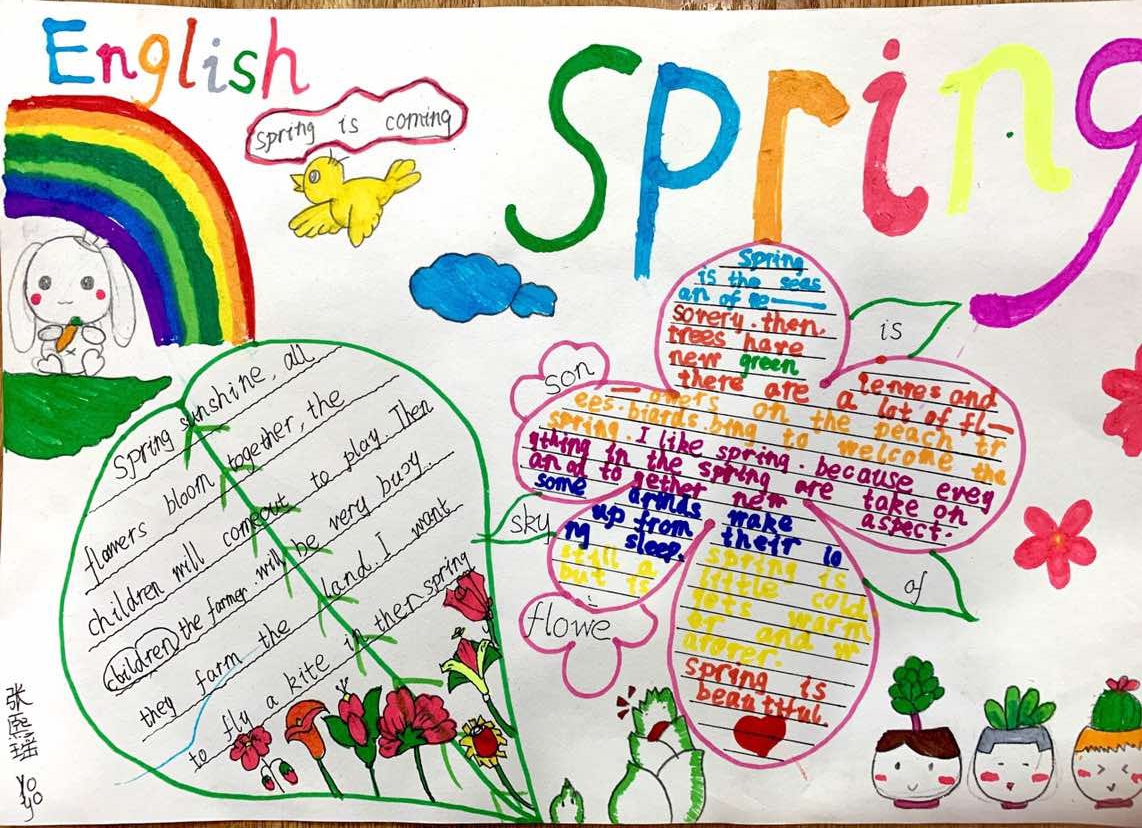 English
Spring
spring is coming
Spring
is the seas
an of se
sorery. then.
trees have
new green
there are a lot of fl
lenres and
owers on the peach tr
ees. biards bing to welcome the
spring. I like spring. because evey
ything in the spring are take on
an a to gether new aspect.
some armas wake
up from their lo
ng sleep.
spring is
still a little cold
but is gets warm
er and w
arorer.
spring is
beautiful.
is
son
sky
of
flowe
spring sunshine, all
flowers bloom together, the
children will comeout to play. Then
children the farmer will be very busy
they farm the land. I want
to fly a kite in ther spring
张熙瑶
yo
yo